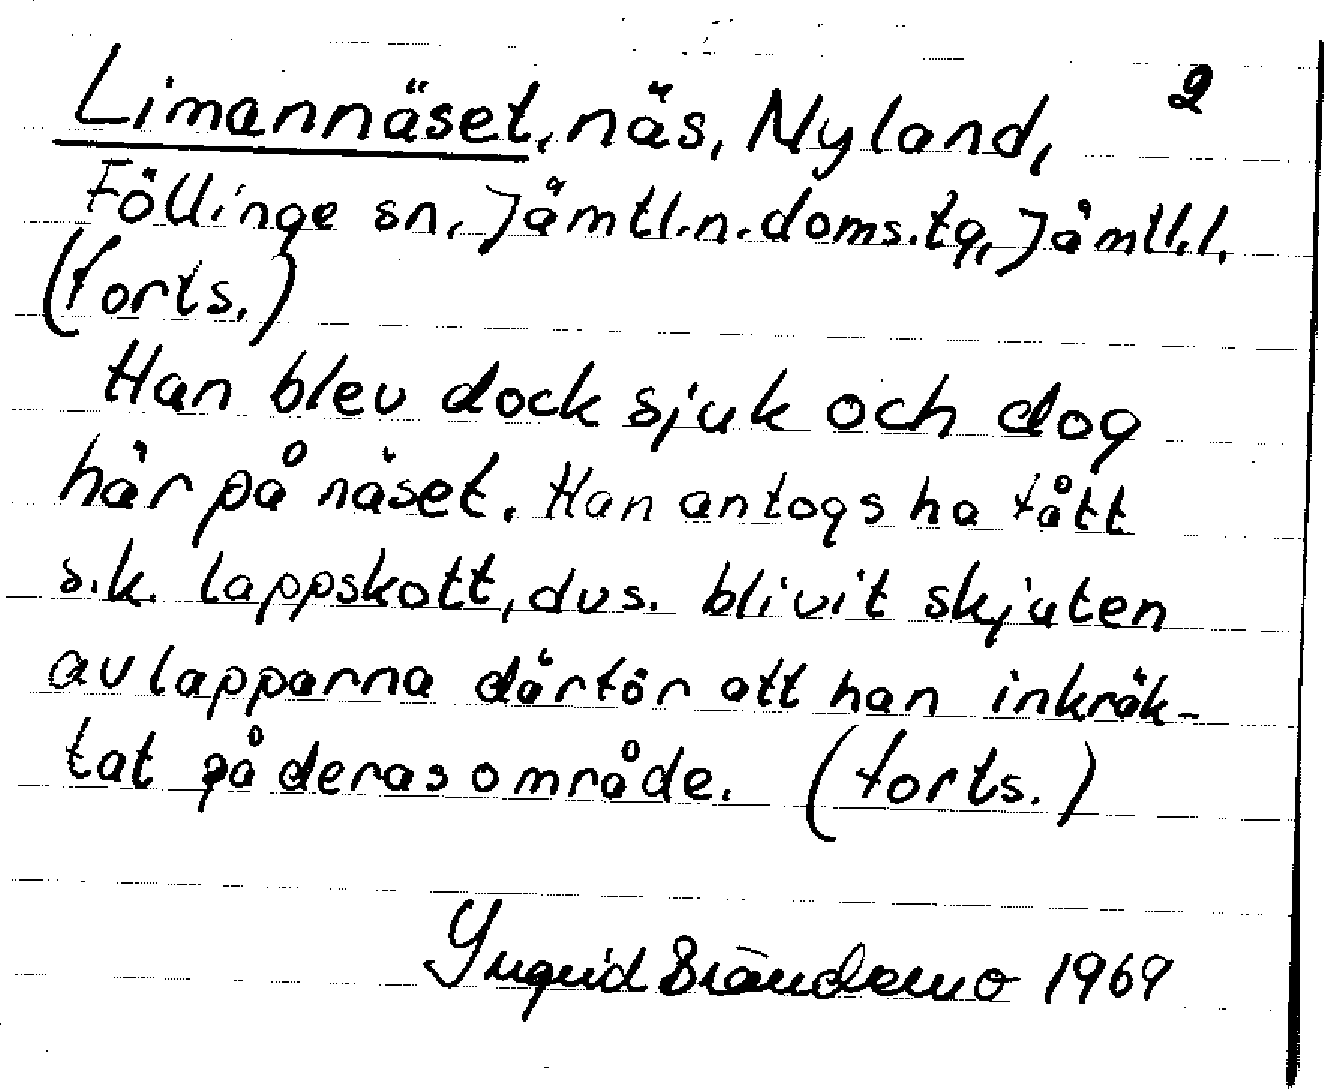 2
Limannäset, näs, Nyland,
Föllinge sn, Jämtl.n.doms.tg, Jämtl.l.
(forts.)
Han blev dock sjuk och dog
här på näset. Han antogs ha fått
s.k. lappskott, dvs. blivit skjuten
av lapparna därför att han inkräk-
tat på deras område. (forts.)
Ingrid Brändemo 1969